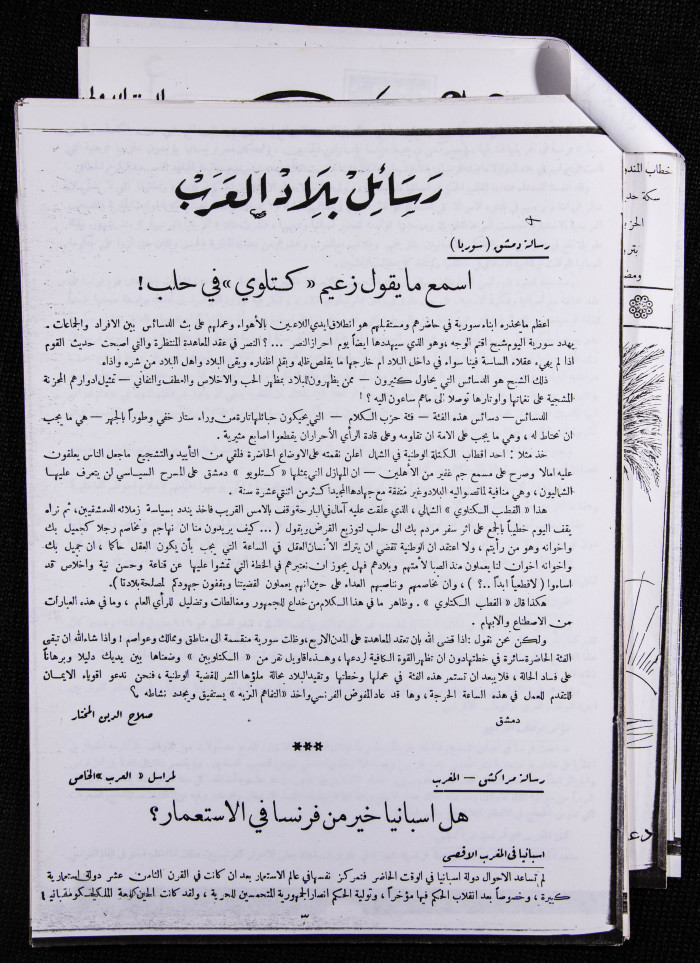 رسائل بلاد العرب
رسالة دمشق ( سوريا )
اسمع ما يقول زعيم « كتلوي » في حلب !
اعظم ما يحذره ابناء سورية في حاضرهم ومستقبلهم هو انطلاق ايدي اللاعبين بالأهواء وعملهم على بث الدسائس بين الافراد والجماعات .
يهدد سورية اليوم شبح اقتم الوجه ، وهو الذي سيهددها ايضاً يوم احراز النصر ...؟ النصر في عقد المعاهدة المنتظرة والتي اصبحت حديث القوم
اذا لم يهيء عقلاء الساسة فينا سواء في داخل البلاد ام خارجها ما يقلص ظله ويقلم اظفاره ويقي البلاد واهل البلاد من شره واذاه
ذلك الشبح هو الدسائس التي يحاول كثيرون – ممن يظهرون للبلاد بمظهر الحب والاخلاص والعطف والتفاني – تمثيل ادوارهم المحزنة
المشجية على نغماتها واوتارها توصلا الى ما هم ساعون اليه ؟ !
الدسائس – دسائس هذه الفئة – فئة حزب الكلام – التي يحيكون حبائلها تارة من وراء ستار خفي وطوراً بالجهر – هي ما يجب
ان نحتاط له ، وهي ما يجب على الامة ان تقاومه وعلى قادة الرأي الأحرار ان يقطعوا اصابع مثيرية .
خذ مثلا : احد اقطاب الكتلة الوطنية في الشمال اعلن نقمته على الاوضاع الحاضرة فلقي من التأييد والتشجيع ما جعل الناس يعلقون
عليه امالا وصرح على مسمع جم غفير من الأهلين – ان المهازل التي يمثلها « كتلويو » دمشق على المسرح السياسي لن يتعرف عليها
الشماليون ، وهي منافية لما تصبو اليه البلاد وغير متفقة مع جهادها المجيد اكثر من اثنتي عشرة سنة .
هذا « القطب الكتلاوي » الشمالي ، الذي علقت عليه آمال في البارحة وقف بالامس القريب فاخذ يندد بسياسة زملائه الدمشقيين ، ثم نراه
يقف اليوم خطيباً بالجمع على اثر سفر مردم بك الى حلب لتوزيع القرض ويقول ( ... كيف يريدون منا ان نهاجم ونخاصم رجلا كجميل بك
واخوانه وهو من رأيتم ، ولا اعتقد ان الوطنية تقضي ان يترك الأنسان العقل في الساعة التي يجب بأن يكون العقل حاكما ، ان جميل بك
واخوانه اخوان لنا يعملون منذ الصبا لأمتهم وبلادهم فهل يجوز ان نعتبرهم في الخطة التي تمشوا عليها عن قناعة وحسن نية واخلاص قد
اساءوا ( لا قطعياً ابداً ..؟ ) ، وان نخاصمهم ونناصبهم العداء على حين انهم يعملون لقضيتنا ويقفون جهودكم لمصلحة بلادنا ) .
هكذا قال « القطب الكتلاوي » . وظاهر ما في هذا الكلام من خداع للجمهور ومغالطات وتضليل للرأي العام ، وما في هذه العبارات
من الاصطناع والابهام .
ولكن نحن نقول : اذا قضى الله بان تعقد المعاهدة على المدن الأربع ، وظلت سورية منقسمة الى مناطق وممالك وعواصم ! واذا شاء الله ان تبقى
الفئة الحاضرة سائرة في خطتها دون ان تظهر القوة الكافية لردعها ، وهذه اقاويل نفر من « الكتلويين » وضعناها بين يديك دليلا وبرهاناً
على فساد الحالة ، فلا يبعد ان تستمر هذه الفئة في عملها وخطتها وتقيد البلاد بحالة ملؤها الشر للقضية الوطنية ، فنحن ندعو اقوياء الايمان
للتقدم للعمل في هذه الساعة الحرجة ، وها قد عاد المفوض الفرنسي واخذ « التفاهم النزيه » يستفيق ويجدد نشاطه ؟
دمشق صلاح الدين المختار
***
رسالة مراكش – المغرب لمراسل « العرب » الخاص
هل اسبانيا خير من فرنسا في الاستعمار ؟
اسبانيا في المغرب الاقصى
لم تساعد الاحوال دولة اسبانيا في الوقت الحاضر فتمركز نفسها في عالم الاستعمار بعد ان كانت في القرن الثامن عشر دولة استعمارية
كبيرة ، وخصوصاً بعد انقلاب الحكم فيها مؤخراً ، وتولية الحكم انصار الجمهورية المتحمسين للحرية ، ولقد كانت الحين
٣
خطاب
سكة
ومض